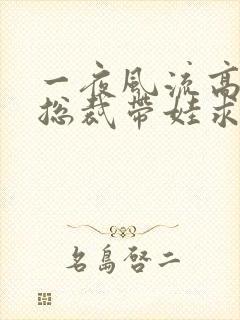 一夜风流高
总裁带娃求
名岛启二